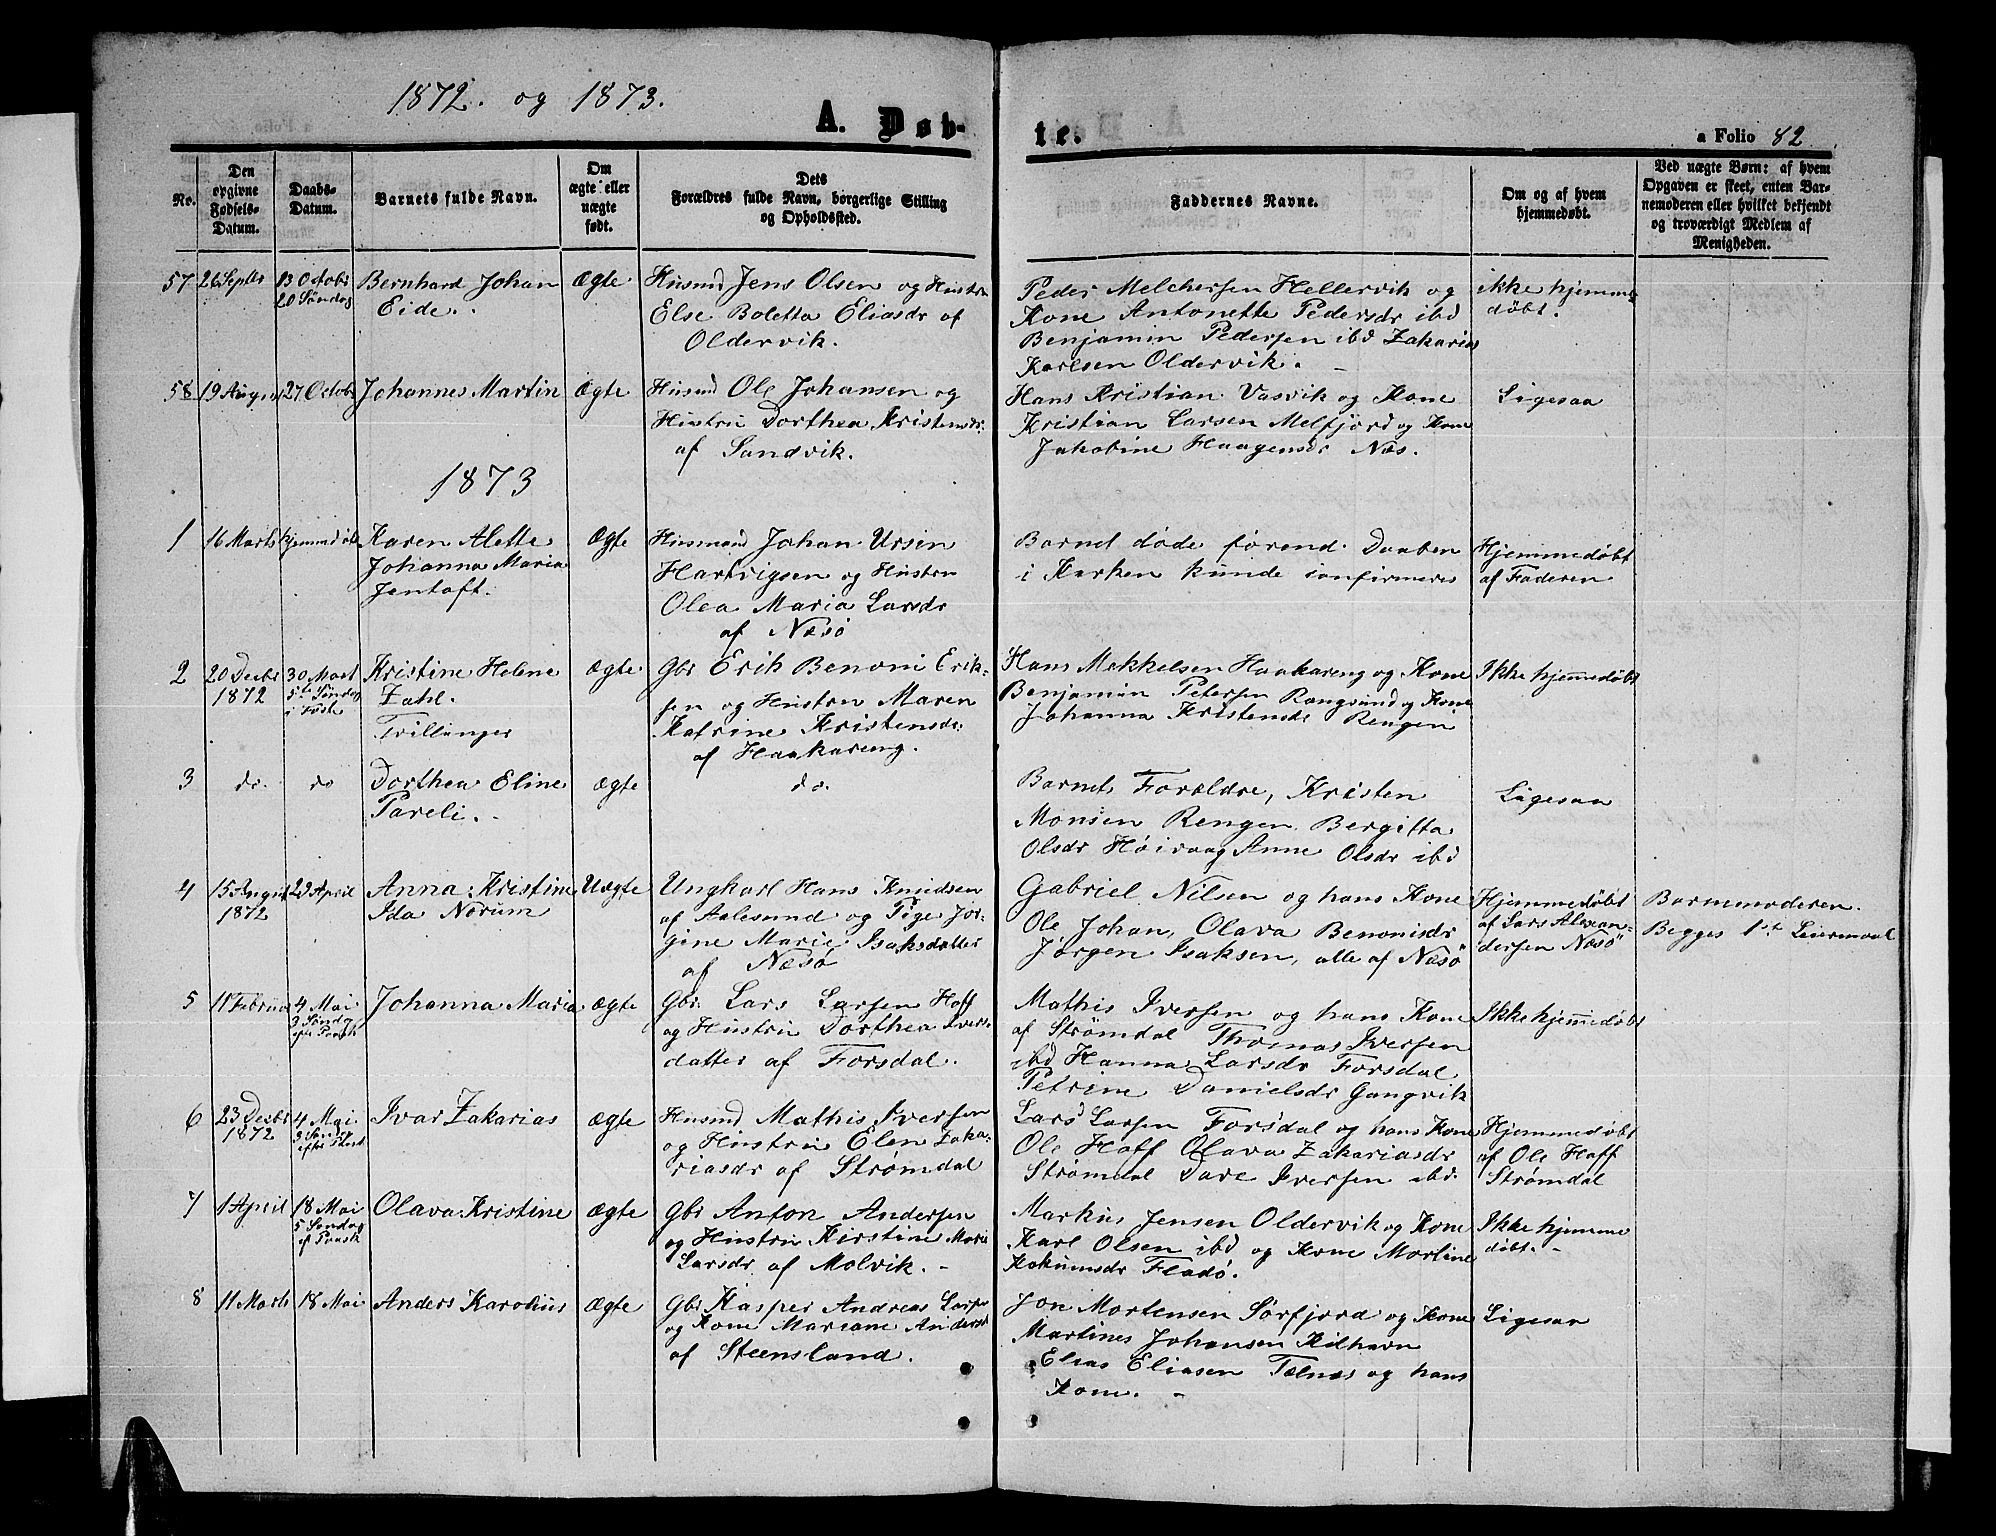 1872. og 1873.
A. Døb-
te.
a Folio 82
No.
Den opgivne Fødsels-Datum.
Daabs-Datum.
Barnets fulde Navn.
Om ægte eller uægte født.
Dets Forældres fulde Navn, borgerlige Stilling og Opholdssted.
Faddernes Navne.
Om og af hvem hjemmedøbt.
Ved uægte Børn: af hvem Opgaven er skeet, enten Barnemoderen eller hvilket bekjendt og troværdigt Medlem af Menigheden.
57 26 Septbr 13 Octobr Bernhard Johan Ægte Husmd Jens Olsen og Hustru
20 Søndag Eide.
Else Boletta Eliasdr af
Oldervik.
Peder Melchersen Hellervik og
Kone Antonette Pedersdr ibd
Benjamin Pedersen ibd Zakarias
Karlsen Oldervik.
ikke hjemme
døbt.
58 19 August 27 Octobr Johannes Martin Ægte Husmd Ole Johansen og
Hustru Dorthea Kristensdr.
af Sandvik.
Hans Kristian Vasvik og Kone
Kristian Larsen Melfjord og Kone
Jakobine Haagensdr Næs.
Ligesaa
1873
1 16 Marts hjemmedøbt Karen Alette Ægte Husmand Johan Ursin
Johanna Maria Hartvigsen og Hustru
Jentoft. Olea Maria Larsdr
af Næsø
Barnet døde førend Daaben
i Kirken kunde confirmeres
Hjemmedøbt
af Faderen
2 20 Decbr 30 Mart Kristine Helene Ægte Gbr Erik Benoni Erik-
1872 5te Søndag Zahl. sen og Hustru Maren
i Faste Trillinger Katrine Kristensdr.
af Haakareng.
Hans Mekkelsen Haakareng og Kone
Benjamin Petersen Rangsund og Kone
Johanna Kristensdr Rengen
Ikke hjemmedøbt
3 do. do Dorthea Eline Ægte do.
Pareli.
Barnets Forældre, Kristen
Monsen Rengen Bergitta
Olsdr Høivaag Anne Olsdr ibd
Ligesaa
4 15 August 29 April Anna Kristine Uægte Ungkarl Hans Knudsen
1872 Ida Norum af Aalesund og Pige Jør-
gine Marie Isaksdatter
af Næsø
Gabriel Nilsen og hans Kone
Ole Johan, Olava Benonisdr
Jørgen Isaksen, alle af Næsø
Hjemmedøbt
af Lars Alexan-
dersen Næsø
Barnemoderen.
Begges 1st Leiermaal
5 11 Februar 4 Mai Johanna Maria Ægte Gbr Lars Larsen Hoff
3 Søndg og Hustru Dorthea Ivers-
datter af Forsdal.
Mathis Iversen og hans Kone
af Strømdal Thomas Iversen
ibd Hanna Larsdr Forsdal
Petrine Danielsdr Gangvik
Ikke hjemmedøbt
6 23 Decbr 4 Mai Ivar Zakarias Ægte Husmd Mathis Iversen
1872 3 Søndg og Hustru Elen Zaka-
riasdr af Strømdal
Lars Larsen Forsdal og hans Kone
Ole Hoff Olava Zakariasdr
Strømdal Dave Iversen ibd.
Hjemmedøbt
af Ole Hoff
Strømdal
7 1 April 18 Mai Olava Kristine Ægte Gbr Anton Andersen
5 Søndag og Hustru Kirstine Marie
Larsdr af Molvik.
Markus Jensen Oldervik og Kone
Karl Olsen ibd og Kone Martine
Fladø.
Ikke hjemme
døbt.
8 11 Marts 18 Mai Anders Karolius Ægte Gbr Kasper Andreas
og Kone Mariane Andersdr
af Steensland.
Jon Mortensen Sørfjord og Kone
Martines Johansen Kilhavn
Elias Eliasen Telnes og hans
Kone.
Ligesaa